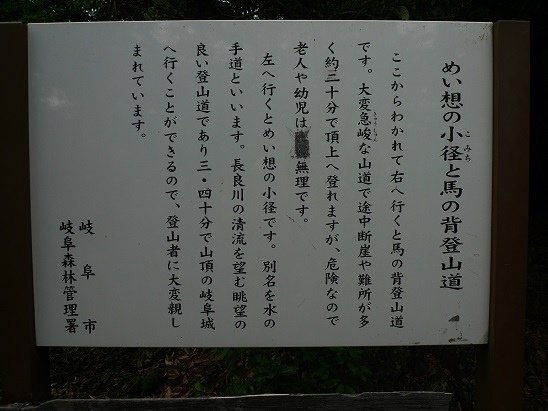 めい想の小径と馬の背登山道
こみち
ここからわかれて右へ行くと馬の背登山道
です。大変急峻な山道で途中断崖や難所が多
きゅうしゅん
く約三十分で頂上へ登れますが、危険なので
老人や幼児は無理です。
左へ行くとめい想の小径です。別名を水の
手道といいます。長良川の清流を望む眺望の
良い登山道であり三・四十分で山頂の岐阜城
へ行くことができるので、登山者に大変親し
まれています。
岐阜市
岐阜森林管理署